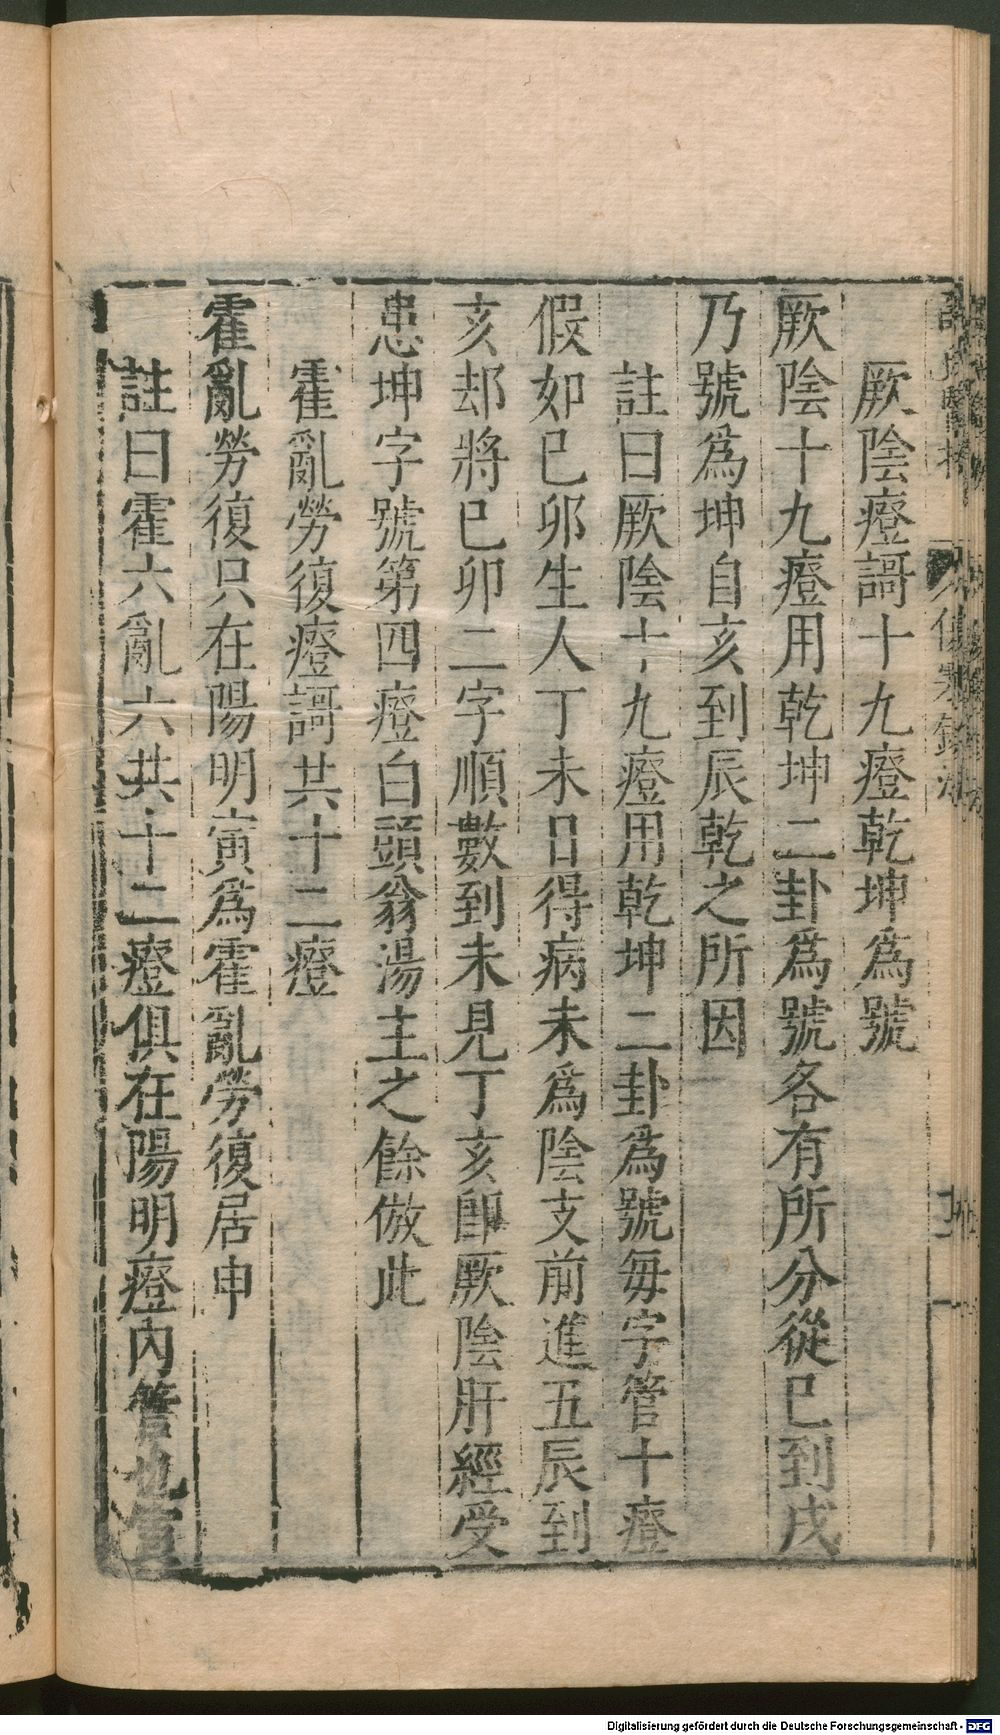 厥陰癊謌十九癊乾坤為號
厥陰十九癊用乾坤二卦為號各有所分從巳到戌
乃號為坤自亥到辰乾之所因
註曰厥陰十九癊用乾坤二卦為號每字管十癊
假如巳卯生人丁未日得病未為陰支前進五辰到
亥却將巳卯二字順數到未見丁亥卽厥陰肝經受
患坤字號第四癊白頭翁湯主之餘倣此
霍亂勞復癊謌共十二癊
霍亂勞復只在陽明寅為霍亂勞復居申
註曰霍六亂六共十二癊俱在陽明癊內管也寅
Digitalisierung gefördert durch die Deutsche Forschungsgemeinschaft - DFG